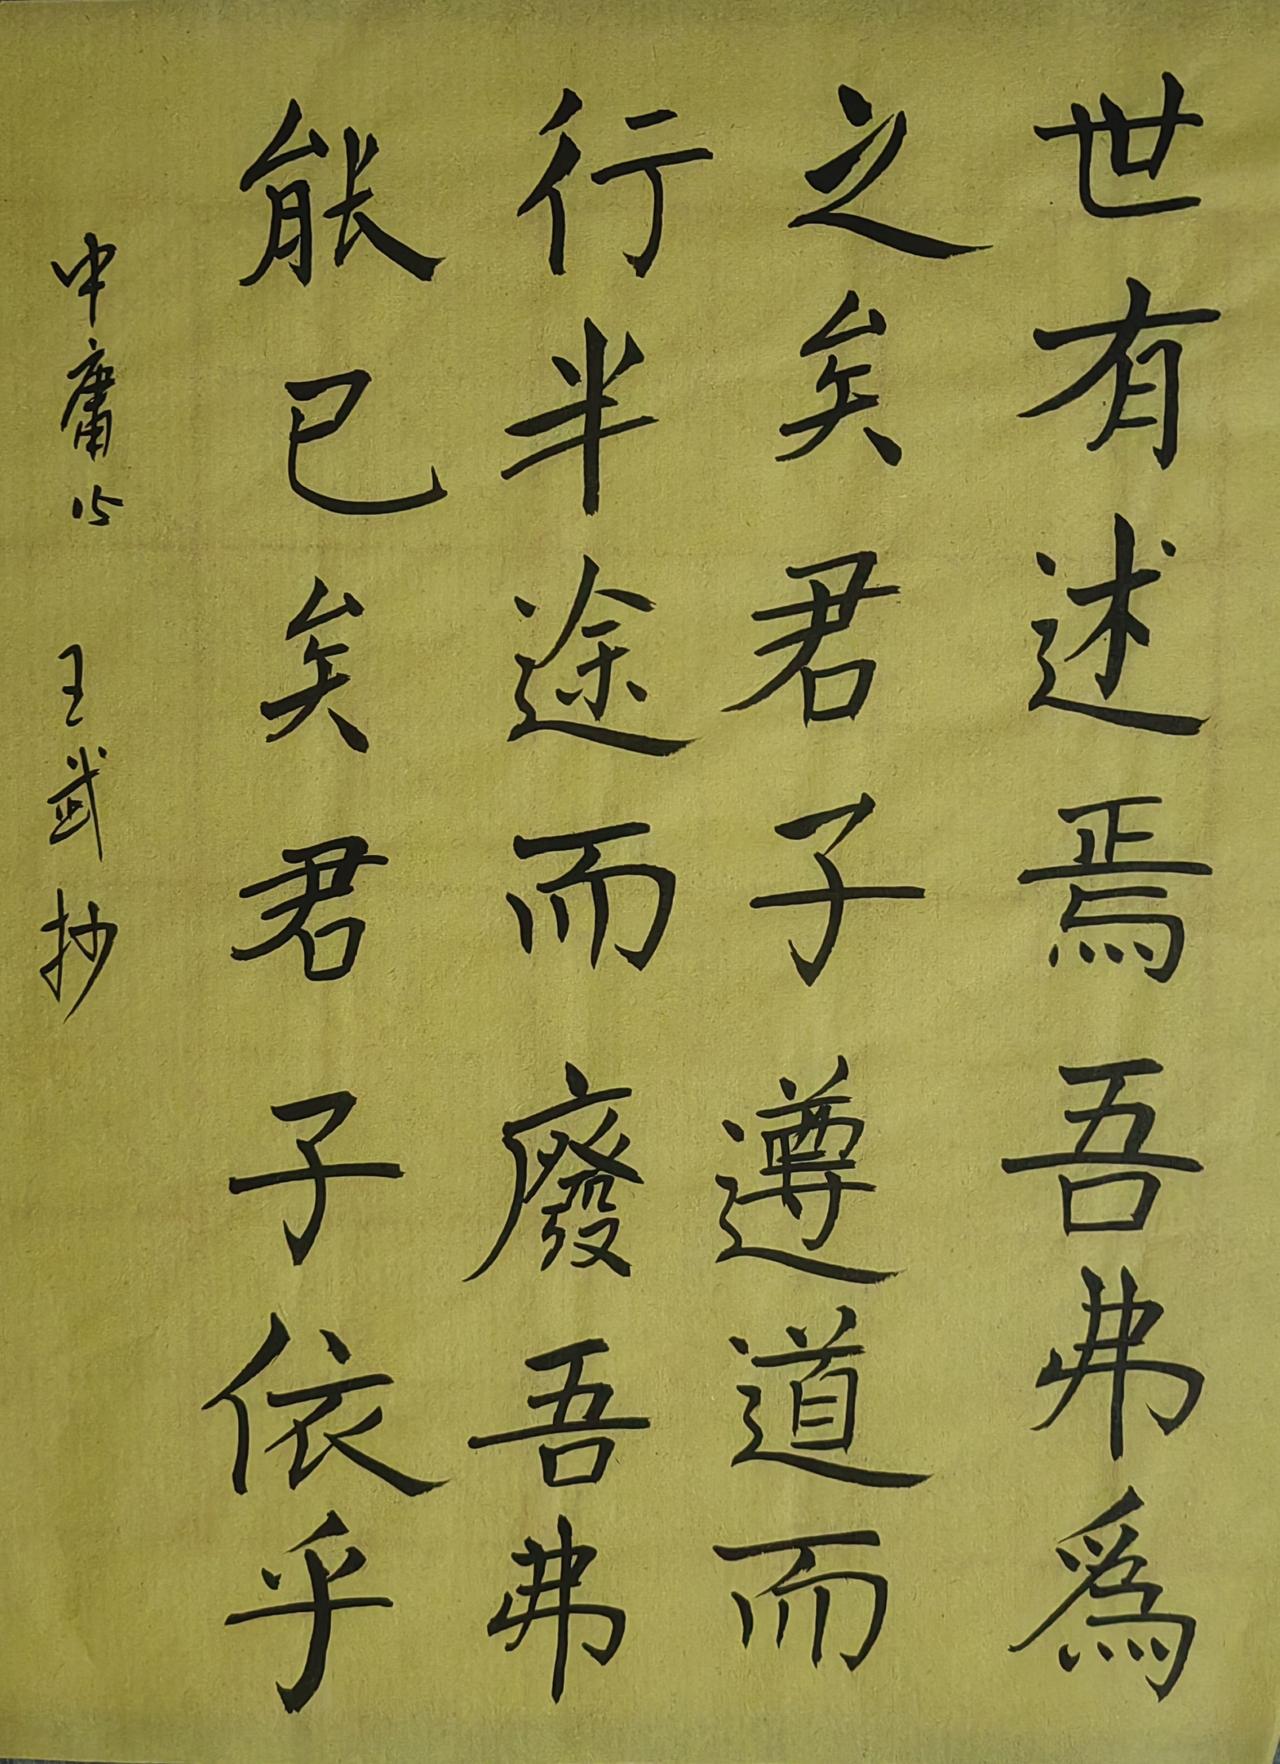 世有述焉吾弗爲
之矣君子遵道而
行半途而廢吾弗
能已矣君子依乎
中庸15 王武抄